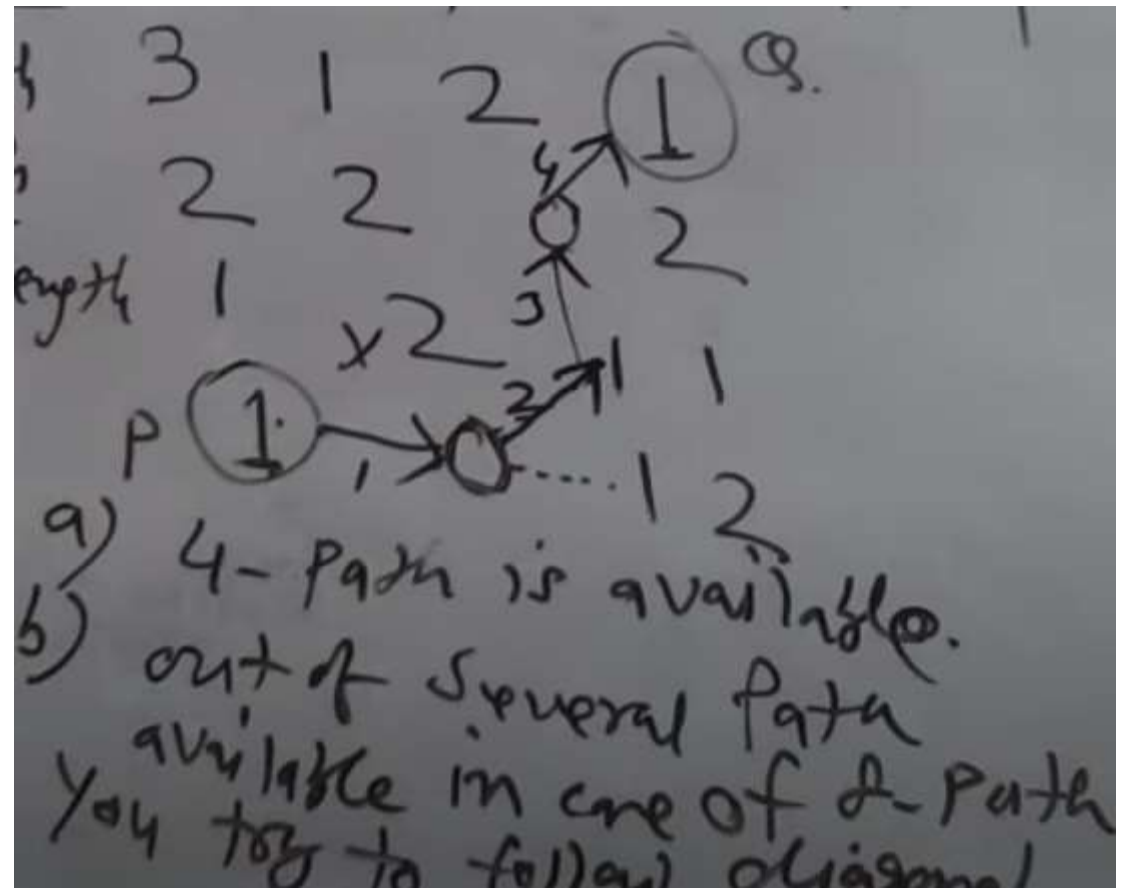 3 1 2 1 Q.
2 2 2
ength 1
x 2 3 4
2 1 1
P 1 1 1 2
a) 4- Path is available.
b) out of several Path
available in case of 8- Path
You try to follow diagonal